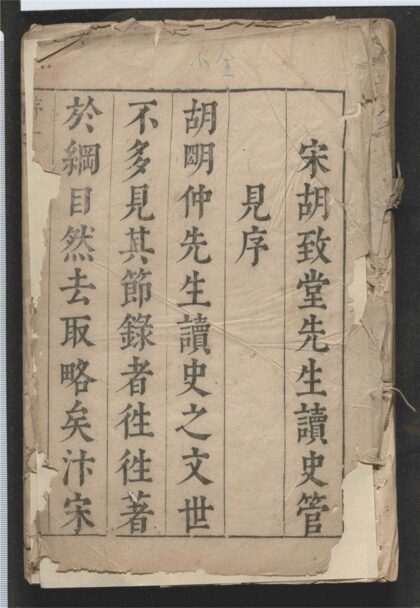 宋胡致堂先生讀史管
見序
胡明仲先生讀史之文世
不多見其節錄者往往著
於綱目然去取略矣汴宋